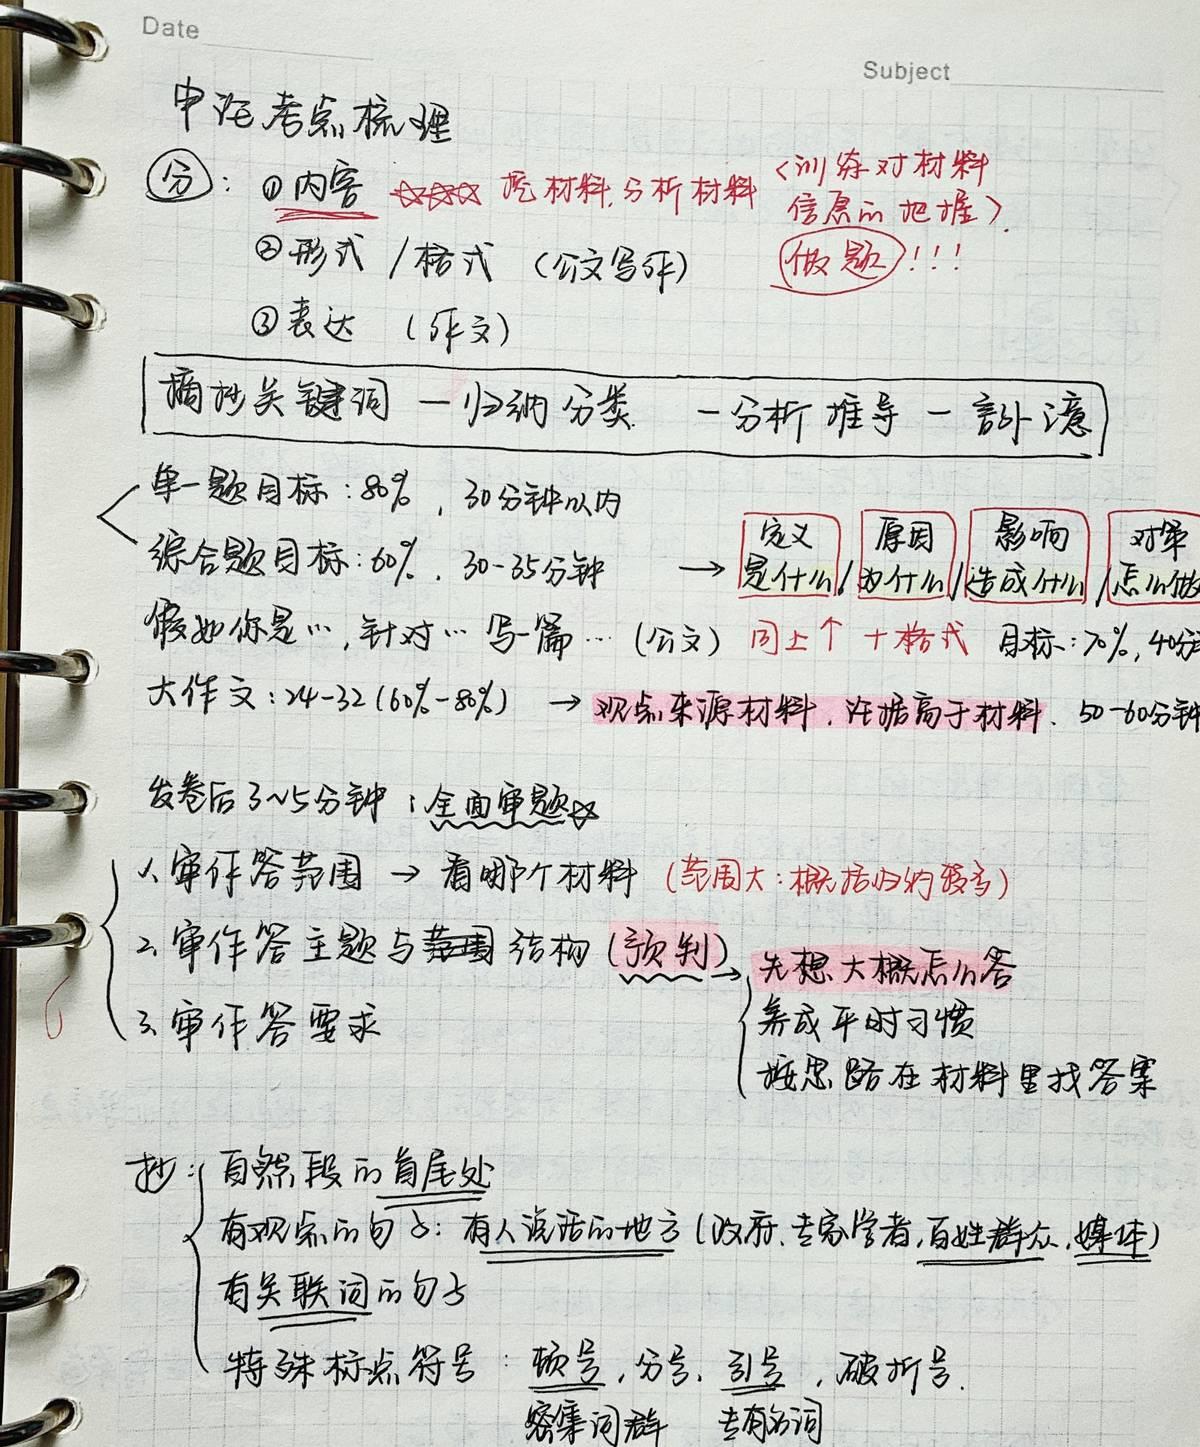 Date
Subject
申论考点梳理
分：①内容 ☆☆☆☆ 挖材料.分析材料 <训练对材料
信息的把握>
②形式/格式（公文写作） 做题!!!
③表达（作文）
摘抄关键词 — 归纳分类 — 分析推导 —
单一题目标：80%，30分钟以内
综合题目标：60%，30-35分钟 → 定义 原因 影响 对策
是什么/为什么/造成什么/怎么做
假如你是…，针对…写一篇…（公文） 同上↑+格式 目标：70%，40分
大作文：24-32(60%-80%) → 观点来源材料，论据高于材料. 50-60分钟
发卷后3~5分钟：全面审题☆
1.审作答范围 → 看哪个材料（范围大：概括归纳较多）
2.审作答主题与结构（预判）→ 先想大概怎么答
养成平时习惯
3.审作答要求
按思路在材料里找答案
抄：自然段的首尾处
有观点的句子：有人说话的地方（政府、专家学者,百姓群众,媒体）
有关联词的句子
特殊标点符号：顿号,分号,引号,破折号.
密集词群 专有名词